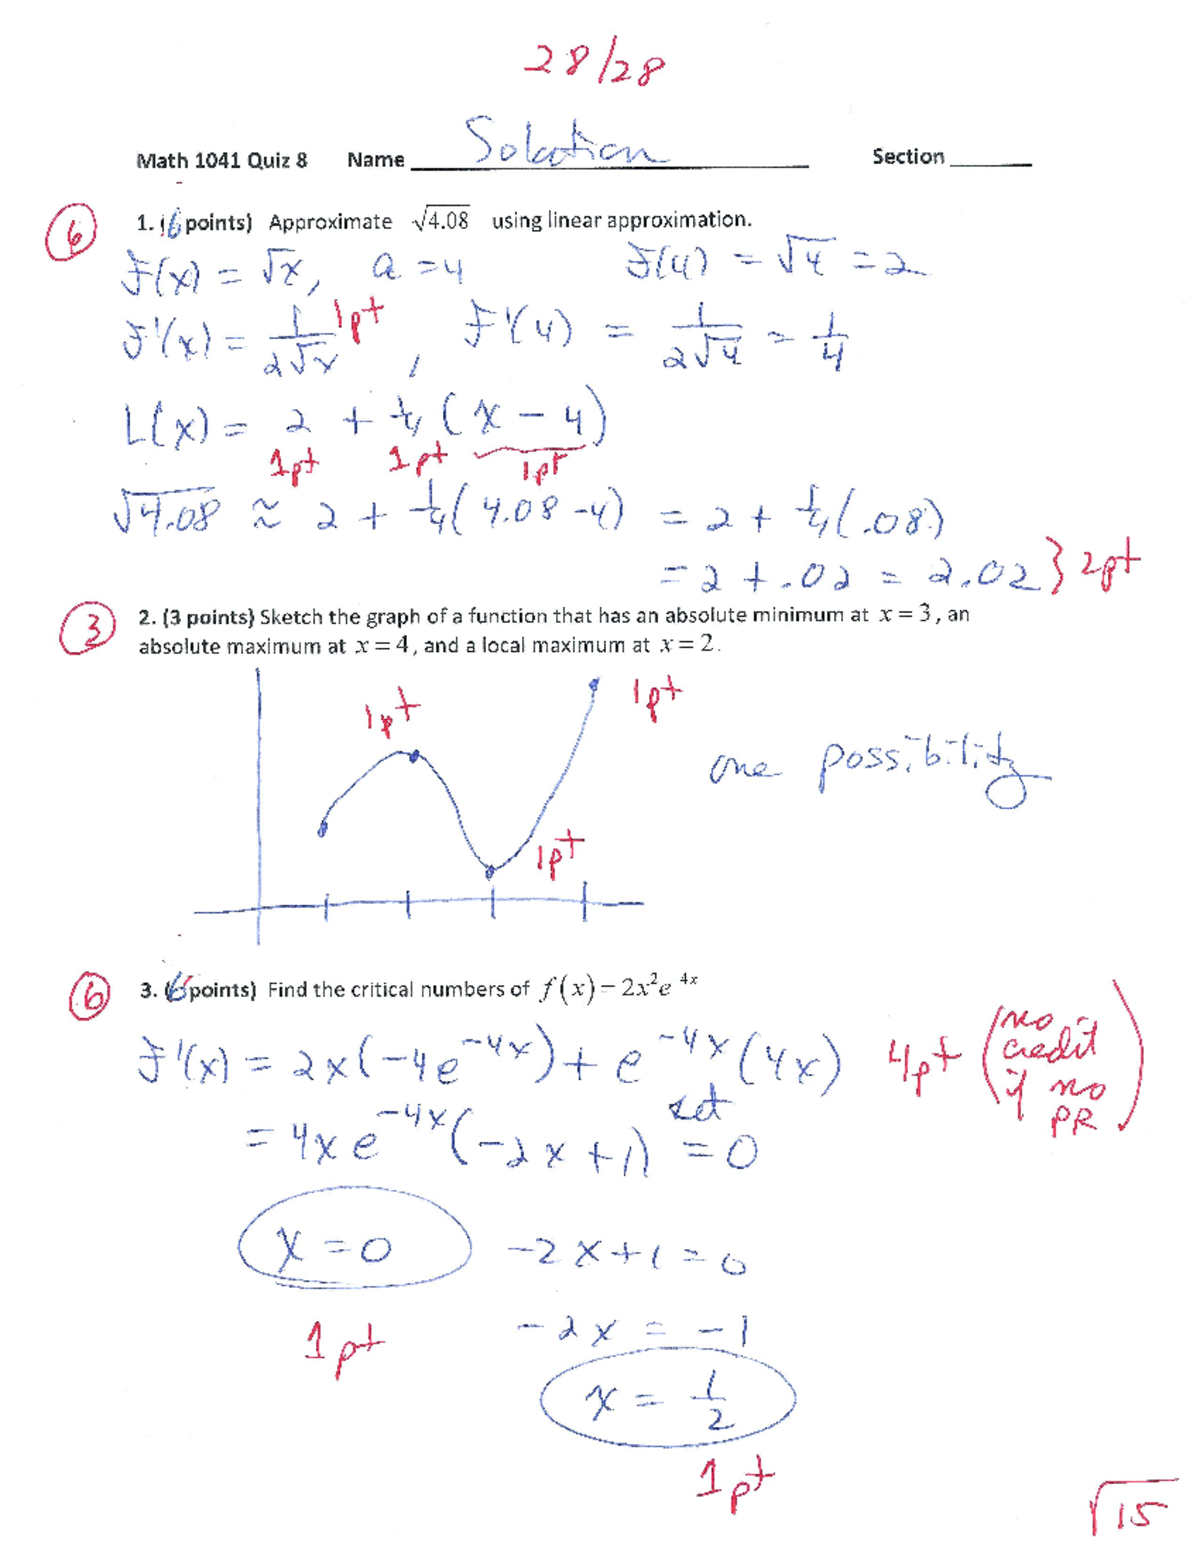 28/28
Math 1041 Quiz 8 Name Solution Section
6 1. (6 points) Approximate √4.08 using linear approximation.
F(x) = √x, a = 4 F(4) = √4 = 2
F'(x) = 1/(2√x) 1pt, F'(4) = 1/(2√4) = 1/4
L(x) = 2 + 1/4 (x - 4)
1pt 1pt 1pt
√4.08 ≈ 2 + 1/4(4.08-4) = 2 + 1/4(.08)
= 2 + .02 = 2.02 } 2pt
3 2. (3 points) Sketch the graph of a function that has an absolute minimum at x = 3, an
absolute maximum at x = 4, and a local maximum at x = 2.
1pt 1pt
one possibility
1pt
6 3. (6 points) Find the critical numbers of f(x) = 2x²e⁻⁴ˣ
F'(x) = 2x(-4e⁻⁴ˣ) + e⁻⁴ˣ(4x) 4pt (no credit if no PR)
= 4xe⁻⁴ˣ(-2x+1) set = 0
x = 0 -2x+1 = 0
1pt -2x = -1
x = 1/2
1pt
√15